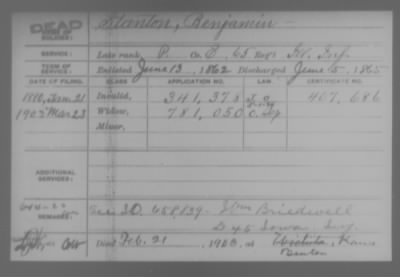 DEAD
NAME OF SOLDIER:
Stanton, Benjamin
SERVICE: Late rank, P Co. C, 63 Reg't Inf.
TERM OF SERVICE: Enlisted June 13, 1862 Discharged June 5, 1865
DATE OF FILING. CLASS. APPLICATION NO. LAW. CERTIFICATE NO.
1880, Jan. 21 Invalid, 341,375 407,686
1903 Mar 23 Widow, 781,050
Minor,
ADDITIONAL SERVICES:
REMARKS: 658,839 Wm Bridwell
D 45 Iowa Inf.
Died Feb. 21, 1903, at Wichita, Kans